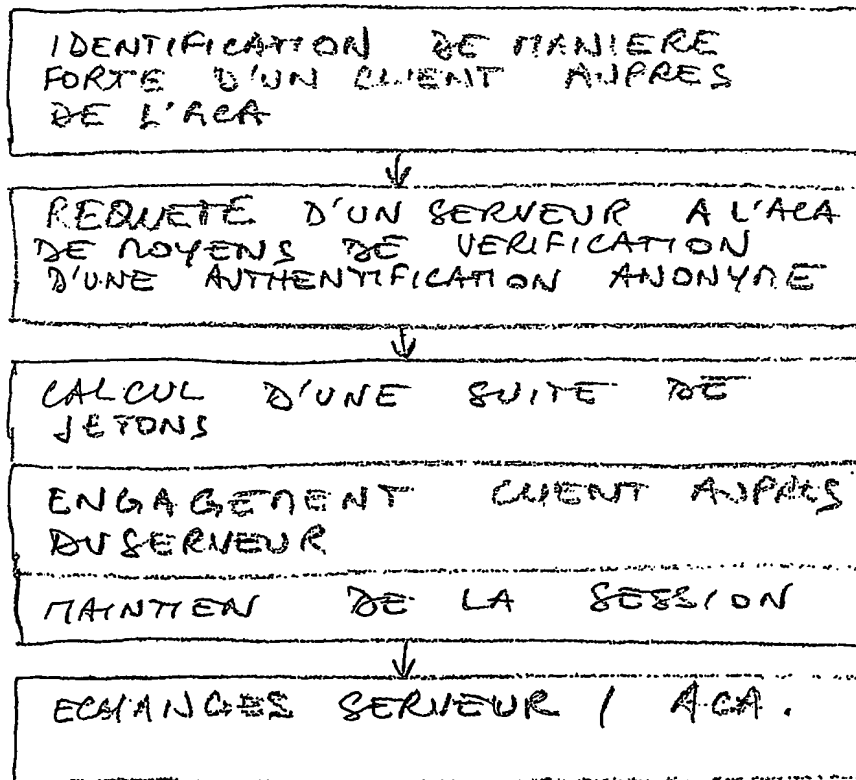 IDENTIFICATION DE MANIERE
FORTE D'UN CLIENT AUPRES
DE L'ACA
REQUETE D'UN SERVEUR A L'ACA
DE MOYENS DE VERIFICATION
D'UNE AUTHENTIFICATION ANONYME
CALCUL D'UNE SUITE DE
JETONS
ENGAGEMENT CLIENT AUPRES
DU SERVEUR
MAINTIEN DE LA SESSION
ECHANGES SERVEUR / ACA.